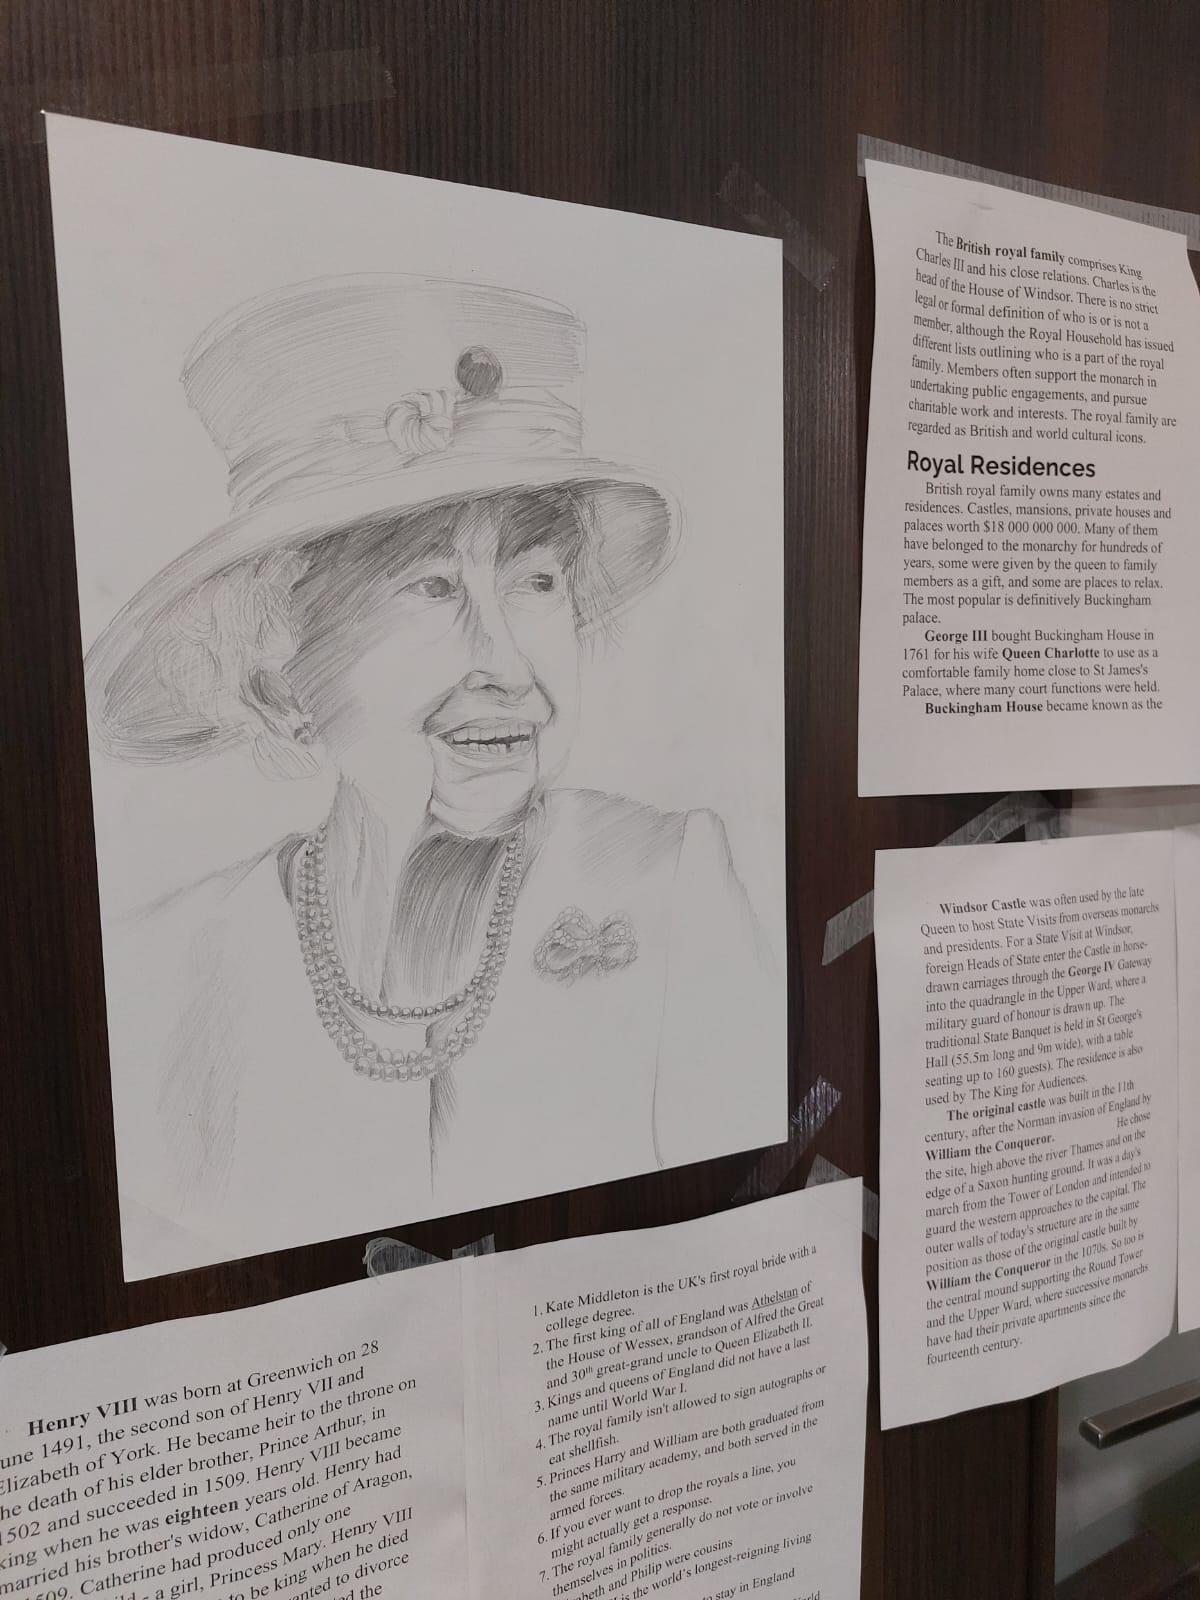 The British royal family comprises King
Charles III and his close relations. Charles is the
head of the House of Windsor. There is no strict
legal or formal definition of who is or is not a
member, although the Royal Household has issued
different lists outlining who is a part of the royal
family. Members often support the monarch in
undertaking public engagements, and pursue
charitable work and interests. The royal family are
regarded as British and world cultural icons.
Royal Residences
British royal family owns many estates and
residences. Castles, mansions, private houses and
palaces worth $18 000 000 000. Many of them
have belonged to the monarchy for hundreds of
years, some were given by the queen to family
members as a gift, and some are places to relax.
The most popular is definitively Buckingham
palace.
George III bought Buckingham House in
1761 for his wife Queen Charlotte to use as a
comfortable family home close to St James's
Palace, where many court functions were held.
Buckingham House became known as the
Windsor Castle was often used by the late
Queen to host State Visits from overseas monarchs
and presidents. For a State Visit at Windsor,
foreign Heads of State enter the Castle in horse-
drawn carriages through the George IV Gateway
into the quadrangle in the Upper Ward, where a
military guard of honour is drawn up. The
traditional State Banquet is held in St George's
Hall (55.5m long and 9m wide), with a table
seating up to 160 guests). The residence is also
used by The King for Audiences.
The original castle was built in the 11th
century, after the Norman invasion of England by
William the Conqueror. He chose
the site, high above the river Thames and on the
edge of a Saxon hunting ground. It was a day's
march from the Tower of London and intended to
guard the western approaches to the capital. The
outer walls of today's structure are in the same
position as those of the original castle built by
William the Conqueror in the 1070s. So too is
the central mound supporting the Round Tower
and the Upper Ward, where successive monarchs
have had their private apartments since the
fourteenth century.
Henry VIII was born at Greenwich on 28
June 1491, the second son of Henry VII and
Elizabeth of York. He became heir to the throne on
the death of his elder brother, Prince Arthur, in
1502 and succeeded in 1509. Henry VIII became
king when he was eighteen years old. Henry had
married his brother's widow, Catherine of Aragon,
1509. Catherine had produced only one
- a girl, Princess Mary. Henry VIII
to be king when he died
wanted to divorce
the
1. Kate Middleton is the UK's first royal bride with a
college degree.
2. The first king of all of England was Athelstan of
the House of Wessex, grandson of Alfred the Great
and 30th great-grand uncle to Queen Elizabeth II.
3. Kings and queens of England did not have a last
name until World War I.
4. The royal family isn't allowed to sign autographs or
eat shellfish.
5. Princes Harry and William are both graduated from
the same military academy, and both served in the
armed forces.
6. If you ever want to drop the royals a line, you
might actually get a response.
7. The royal family generally do not vote or involve
themselves in politics.
and Philip were cousins
is the world's longest-reigning living
to stay in England